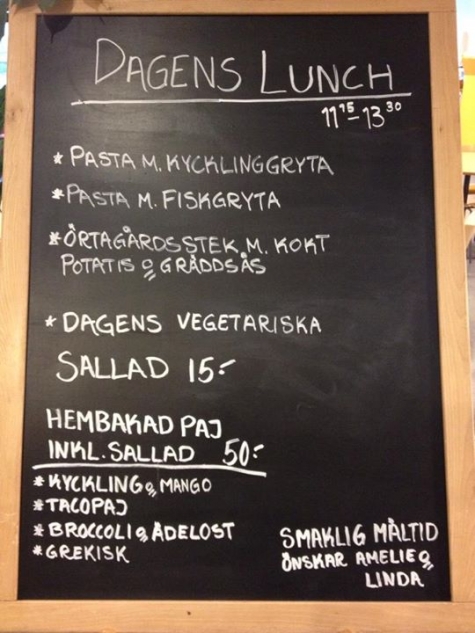 DAGENS LUNCH
11 15 - 13 30
* PASTA M. KYCKLINGGRYTA
* PASTA M. FISKGRYTA
* ÖRTAGÅRDSSTEK M. KOKT
POTATIS o GRÄDDSÅS
* DAGENS VEGETARISKA
SALLAD 15:-
HEMBAKAD PAJ
INKL. SALLAD 50:-
* KYCKLING o MANGO
* TACOPAJ
* BROCCOLI o ÄDELOST
* GREKISK
SMAKLIG MÅLTID
ÖNSKAR AMELIE o
LINDA